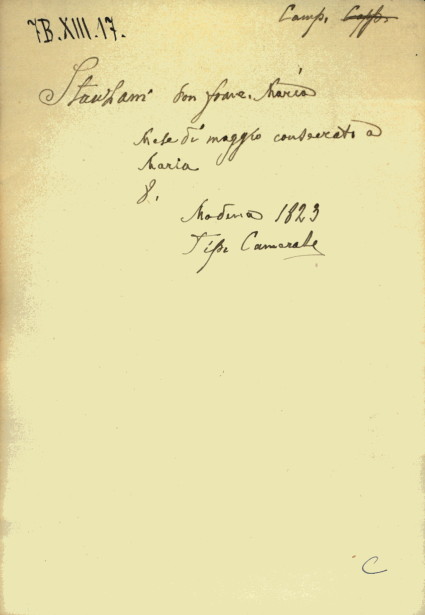 7B.XIII.17.
Camp. Capp.
Stanzani Don Maria
Mese di maggio consecrato a
Maria
8.
Modena 1823
Tip. Camerale
C